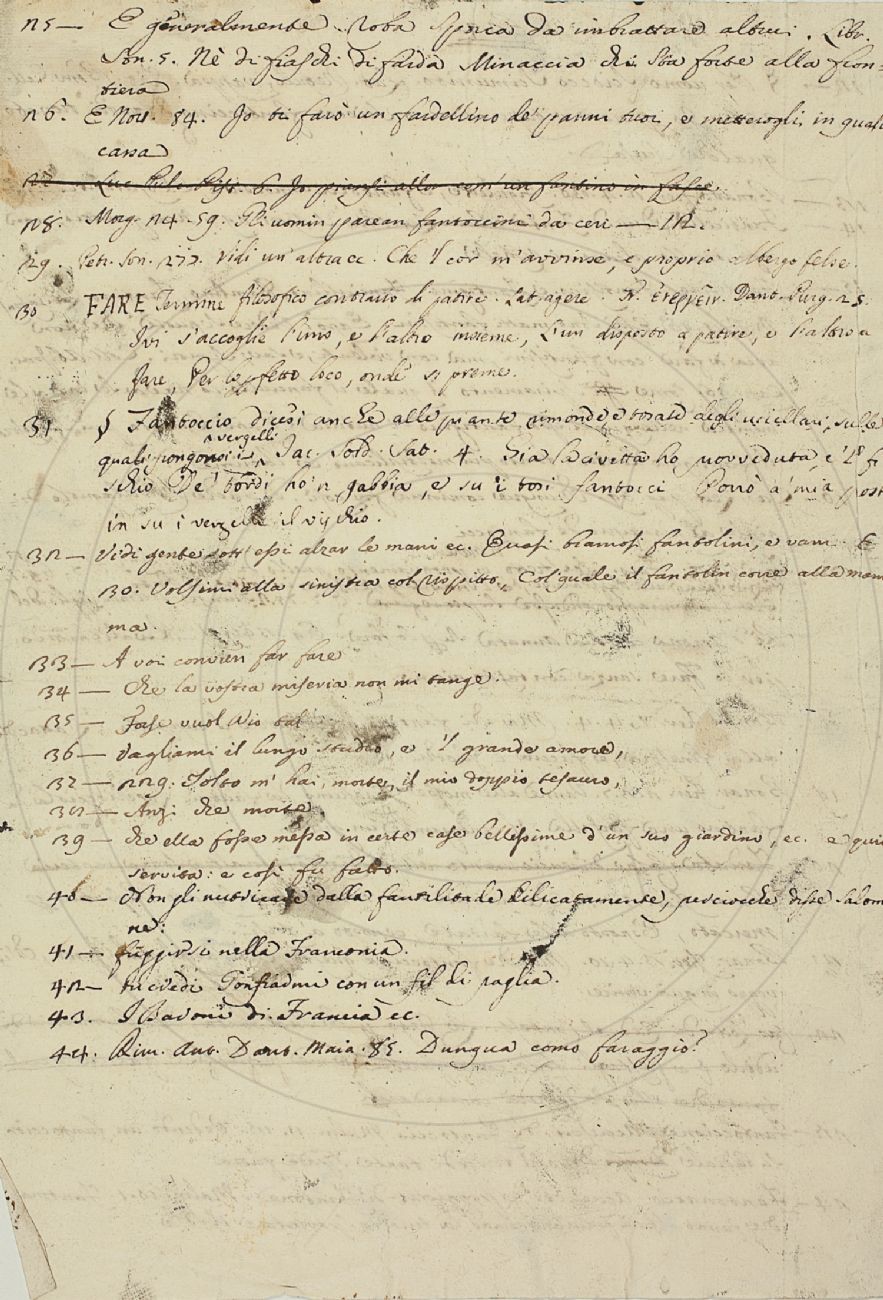 25 — E generalmente Roba sporca da imbrattare altrui. Libr.
Son. 5. Nè di fiaschi di farda Minaccia chi sta forte alla fron=
tiera
26. E Nov. 84. Io ti farò un fardellino de' panni tuoi, e metterogli in quella
cassa
Luc. Pulc. 6. Io piansi allor com' un fantino in fasce.
28. Morg. 24. 59. Gli uomin parean fantoccini da ceri — 12.
29. Petr. Son. 277. Vidi un' altra ec. Che 'l cor m'avvinse, e proprio albergo felse.
30 FARE Termine filosofico contrario di patire. Lat. agere. Dant. Purg. 25.
Ivi s'accoglie l'uno, e l'altro insieme, L'un disposto a patire, e l'altro a
fare, Per lo perfetto loco, onde si preme.
31 § Fantoccio dicesi anche alle piante rimonde, e tosate degli uccellari, sulle
quali pongonsi i vergelli. Jac. Sold. Sat. 4. Già la civetta ho provveduta, e 'l fi
schio De' tordi ho 'n gabbia, e su i tosi fantocci Porrò a' mia post
in su i vergelli il vischio.
32 — Vidi gente sott' essi alzar le mani ec. Quasi bramosi fantolini, e vani. E
30. Volsimi alla sinistra col rispitto, Col quale il fantolin corre alla mam
ma.
33 — A voi convien far fare
34 — Che la vostra miseria non mi tange.
35 — Forse vuol Dio tal
36 — Vagliami il lungo studio, e 'l grande amore,
37 — 229. Tolto m' hai, morte, il mio doppio tesauro,
38 — Anzi che morte.
39 — Che ella fosse messa in certe case bellissime d'un suo giardino, ec. e quivi
servita: e così fu fatto.
40 — Non gli nutricare dalla fantilitade dilicatamente, perciocchè disse Salom
ne:
41 — fuggirsi nella Franconia.
42 — tu credi Gonfiadmi con un fil di paglia.
43. I Baroni di Francia ec.
44. Rim. Ant. Dant. Maia. 85. Dunqua como faraggio?